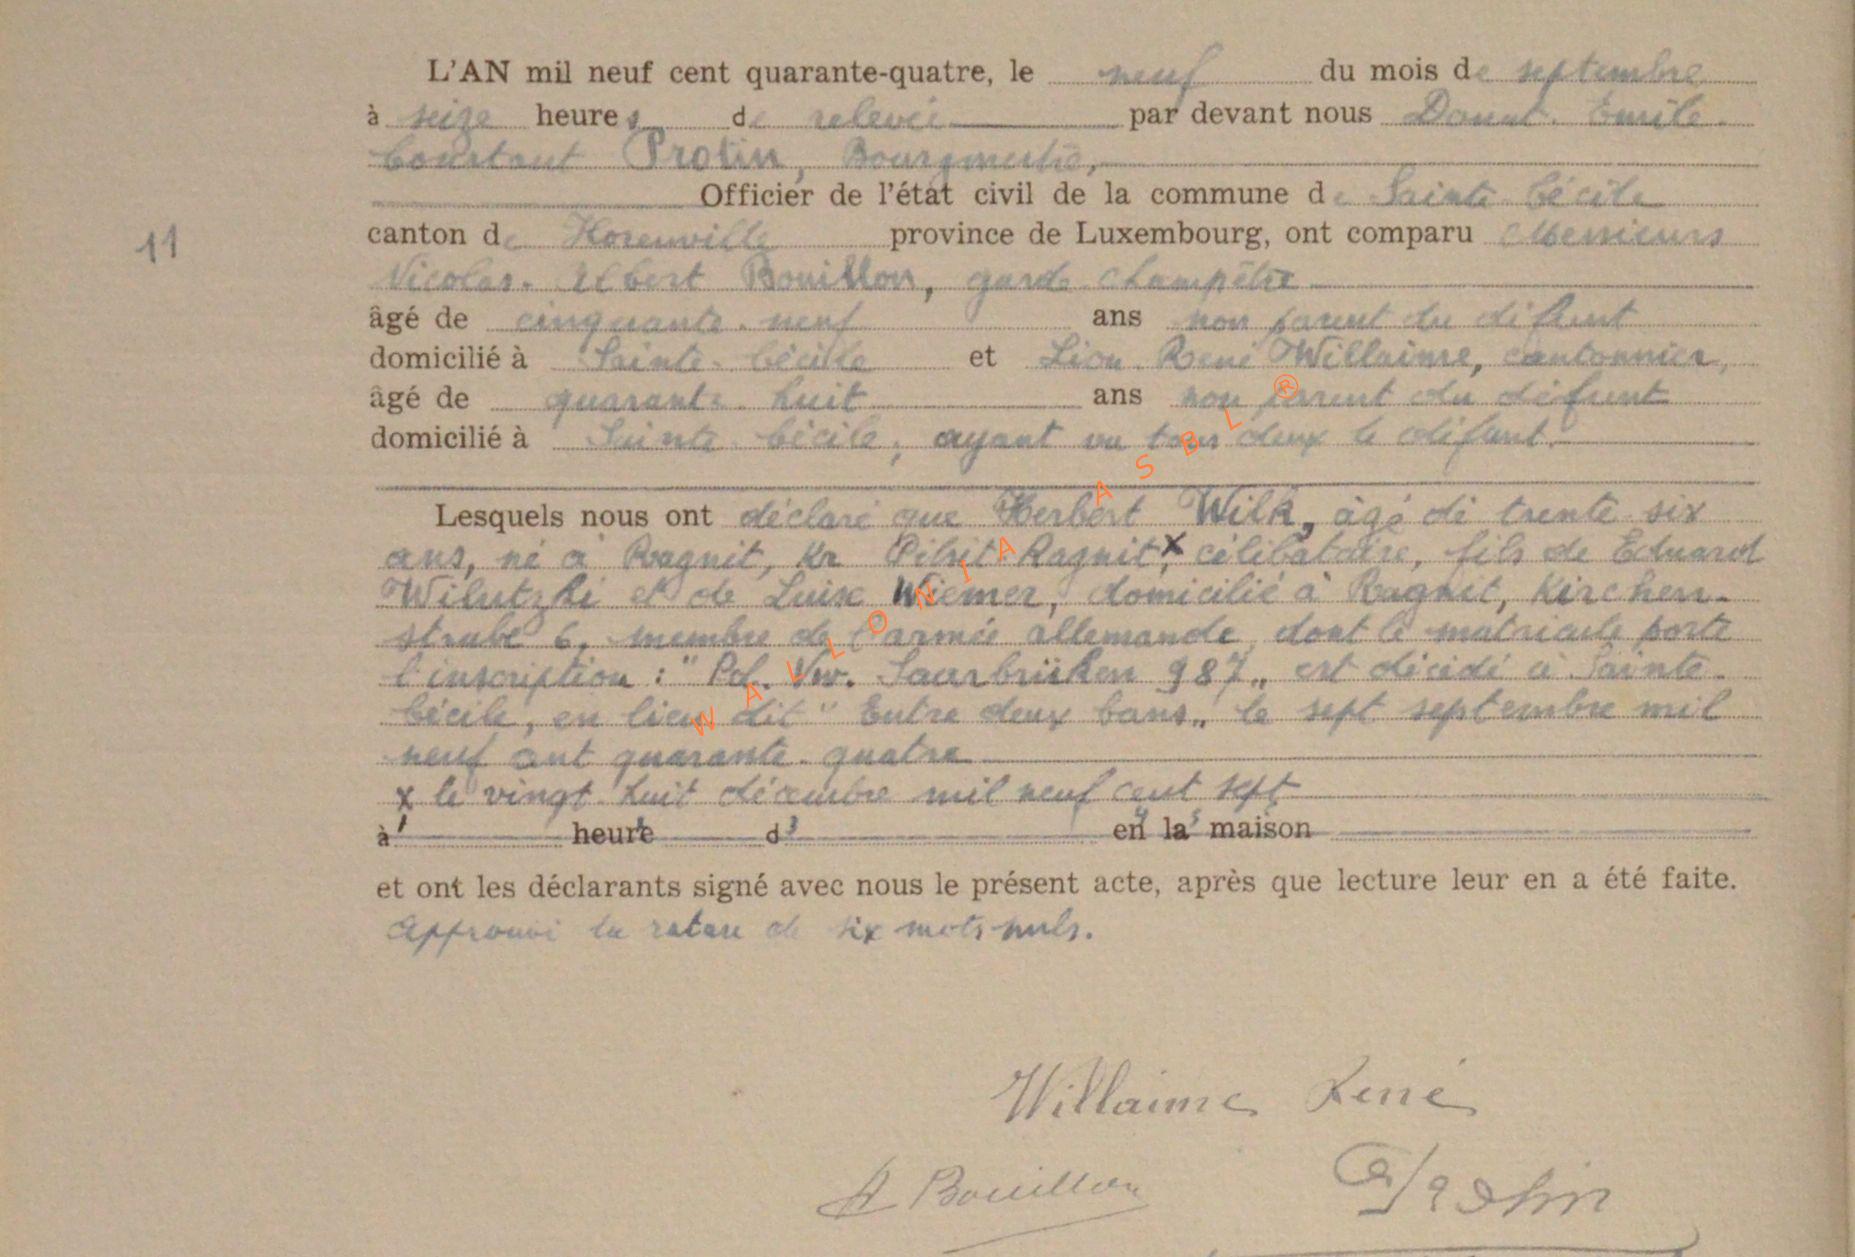 L'AN mil neuf cent quarante-quatre, le neuf du mois de septembre
à seize heures de relevée par devant nous Donat Emile
Constant Protin, Bourgmestre,
Officier de l'état civil de la commune de Sainte-Cécile
11
canton de Florenville province de Luxembourg, ont comparu Messieurs
Nicolas-Albert Bouillon, garde champêtre
âgé de cinquante-neuf ans non parent du défunt
domicilié à Sainte-Cécile et Léon René Willaime, cantonnier,
âgé de quarante-huit ans non parent du défunt
domicilié à Sainte-Cécile, ayant vu tous deux le défunt.
Lesquels nous ont déclaré que Herbert Wilk, âgé de trente six
ans, né à Ragnit, Kr Tilsit Ragnit, x célibataire, fils de Eduard
Wilutzki et de Luise Wiemer, domicilié à Ragnit, Kirchen-
strabe 6, membre de l'armée allemande, dont le matricule porte
l'inscription : "Pol. Vw. Saarbrüken 987" est décédé à Sainte-
Cécile, en lieu dit "Entre deux bans" le sept septembre mil
neuf cent quarante-quatre
x le vingt-huit décembre mil neuf cent sept
à heure d en la maison
et ont les déclarants signé avec nous le présent acte, après que lecture leur en a été faite.
Approuvé la rature de six mots nuls.
Willaime René
A Bouillon
WALLONIA ASBL ®